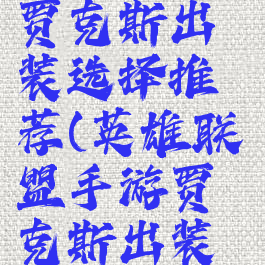 贾克斯出
装选择推
荐(英雄联
盟手游贾
克斯出装